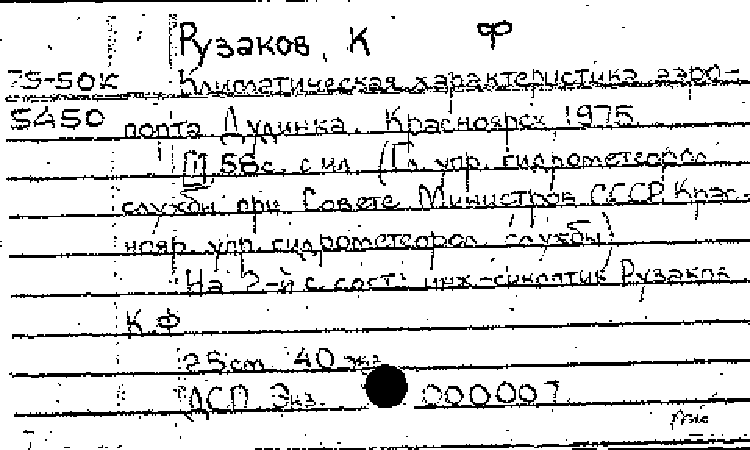 Рузаков, К Ф
75-50К Климатическая характеристика аэро-
5450 порта Дудинка. Красноярск 1975
58с. с ил. (Гл. упр. гидрометеорол.
службы при Совете Министров СССР. Крас-
нояр. упр. гидрометеорол. службы)
На 2-й с сост: инж.-синоптик Рузаков
К.Ф
25см 40 экз
ДСП Экз. 000007